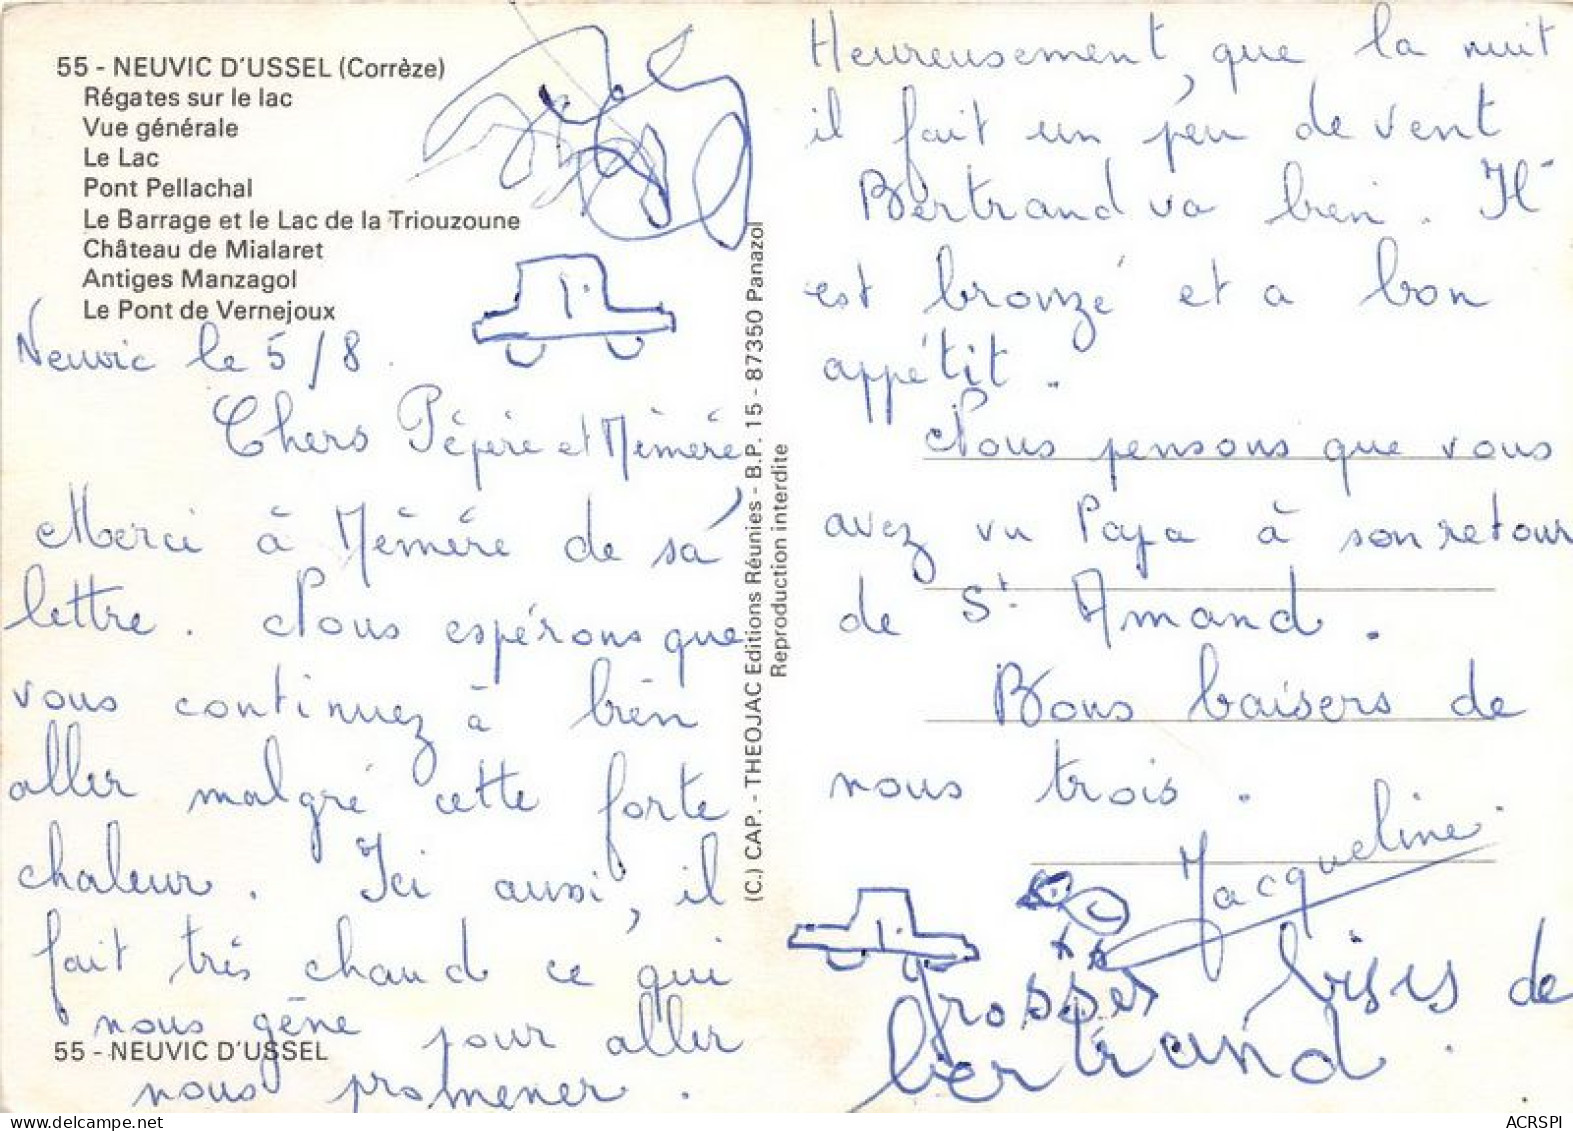 55 - NEUVIC D'USSEL (Corrèze)
Régates sur le lac
Vue générale
Le Lac
Pont Pellachal
Le Barrage et le Lac de la Triouzoune
Château de Mialaret
Antiges Manzagol
Le Pont de Vernejoux
Neuvic le 5/8.
Chers Pépère et Mémère
Merci à Mémère de sa
lettre. Nous espérons que
vous continuez à bien
aller malgré cette forte
chaleur. Ici aussi, il
fait très chaud ce qui
nous gêne pour aller
55 - NEUVIC D'USSEL
nous promener.
(C.) CAP. - THEOJAC Editions Réunies - B.P. 15 - 87350 Panazol
Reproduction interdite
Heureusement, que la nuit
il fait un peu de vent
Bertrand va bien. Il
est bronzé et a bon
appétit.
Nous pensons que vous
avez vu Papa à son retour
de St. Amand.
Bons baisers de
nous trois.
Jacqueline
grosses bises de
bertrand.
ACRSPI